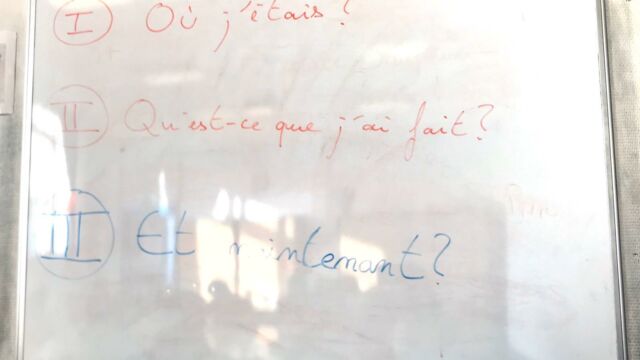 I Où j'étais?
II Qu'est-ce que j'ai fait?
III Et maintenant?